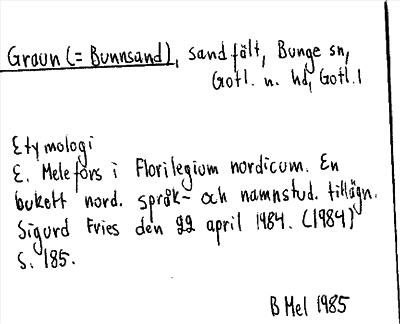 Graun (= Bunnsand), sandfält, Bunge sn,
Gotl. n. hd, Gotl. l
Etymologi
E. Melefors i Florilegium nordicum. En
bukett nord. språk- och namnstud. tillägn.
Sigurd Fries den 22 april 1984. (1984)
S. 185.
B Mel 1985